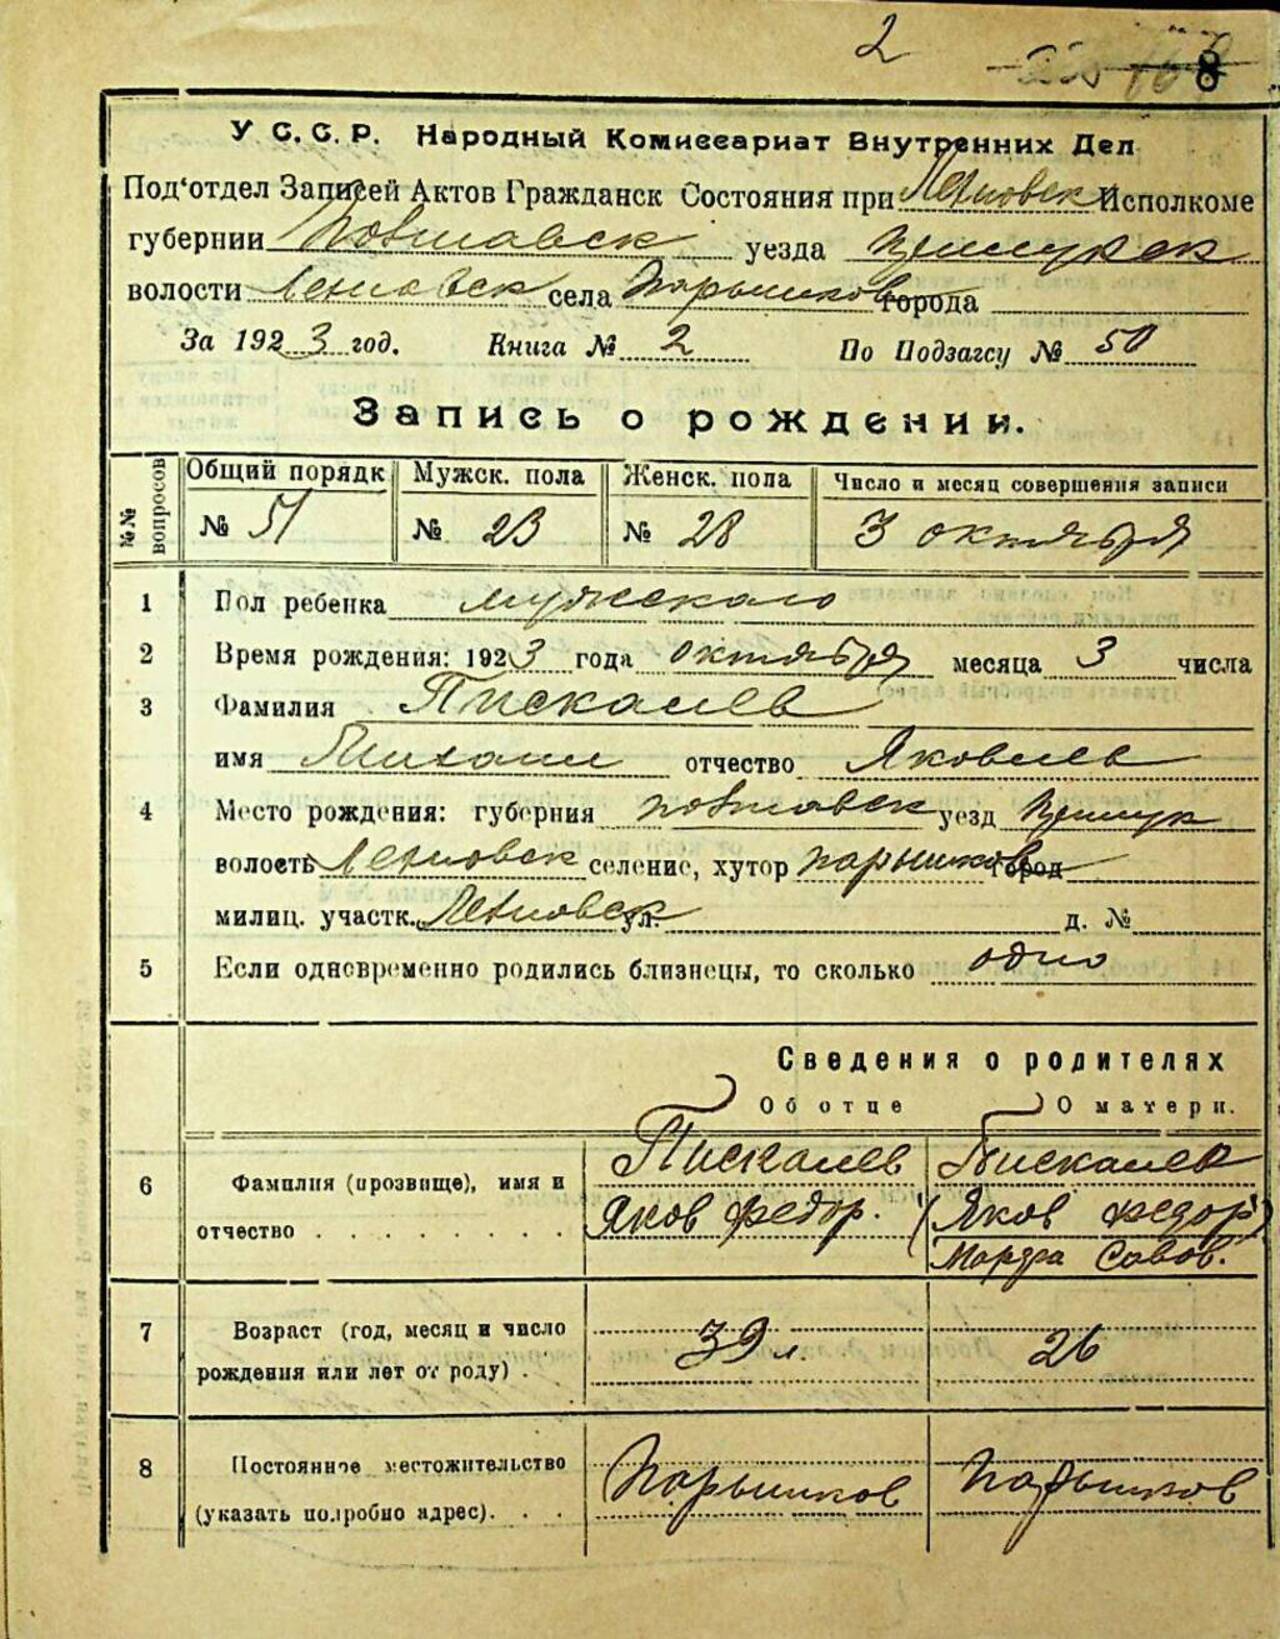 2
8
У С. С. Р. Народный Комиссариат Внутренних Дел
Под‘отдел Записей Актов Гражданск Состояния при Леляковск Исполкоме
губернии Полтавск уезда
волости Леляковск села Нарышков города
За 1923 год. Книга № 2 По Подзагсу № 50
Запись о рождении.
№№ вопросов
Общий порядк Мужск. пола Женск. пола Число и месяц совершения записи
№ 51 № 23 № 28 3 октября
1 Пол ребенка мужского
2 Время рождения: 1923 года октября месяца 3 числа
3 Фамилия Пискалев
имя Михаил отчество Яковлев
4 Место рождения: губерния Полтавск уезд
волость селение, хутор город
милиц. участк. ул. д. №
5 Если одновременно родились близнецы, то сколько одно
Сведения о родителях
Об отце О матери.
6 Фамилия (прозвище), имя и Пискалев Пискалев
отчество Яков Федор. (Яков Федор)
Марфа Савов.
7 Возраст (год, месяц и число 39 л. 26
рождения или лет от роду) .
8 Постоянное местожительство
(указать подробно адрес). . .